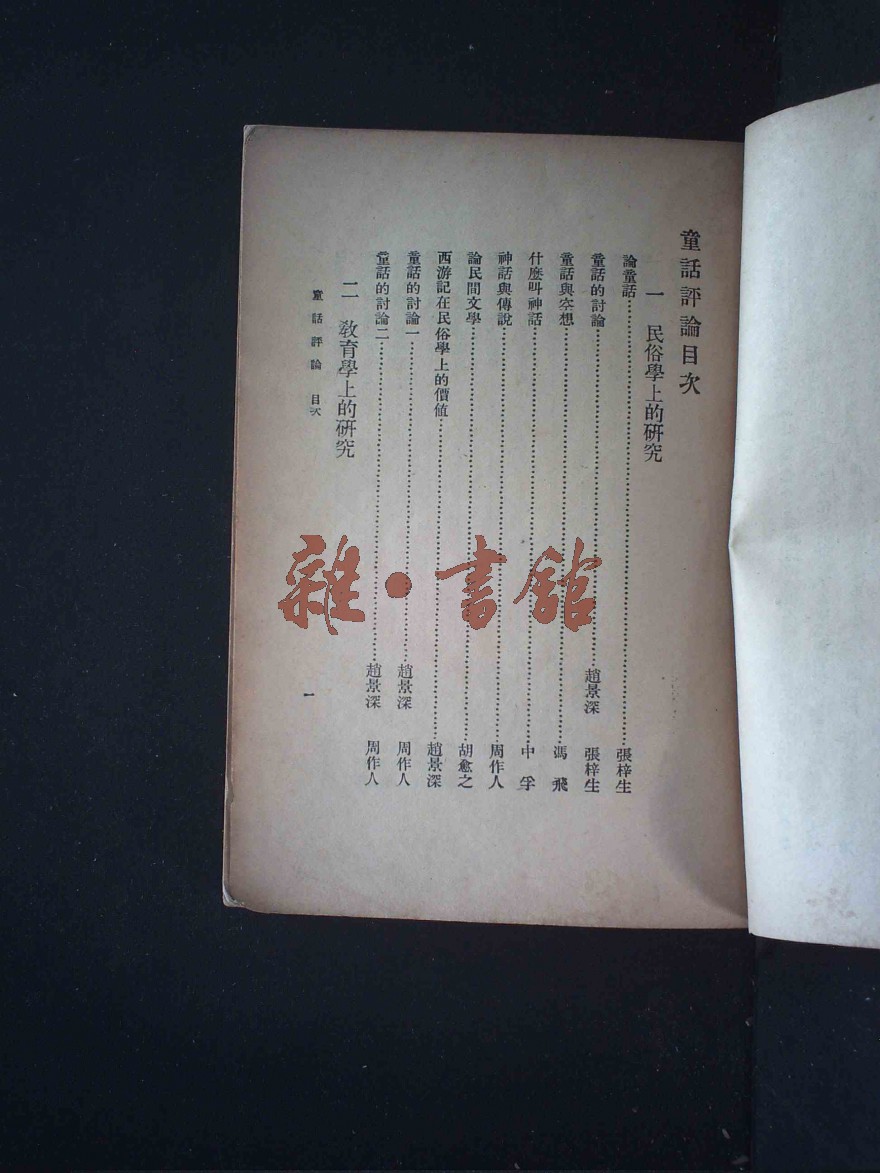 童話評論目次
一 民俗學上的研究
論童話……張梓生
童話的討論……趙景深 張梓生
童話與空想……馮飛
什麼叫神話……中孚
神話與傳說……周作人
論民間文學……胡愈之
西游記在民俗學上的價值……趙景深
童話的討論一……趙景深 周作人
童話的討論二……趙景深 周作人
二 敎育學上的硏究
童話評論 目次
一
雜·書館